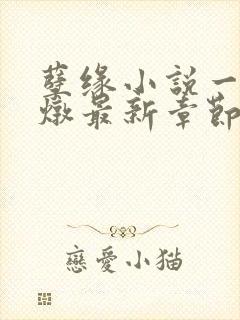 孽缘小說一
燉最新章節
戀愛小猫